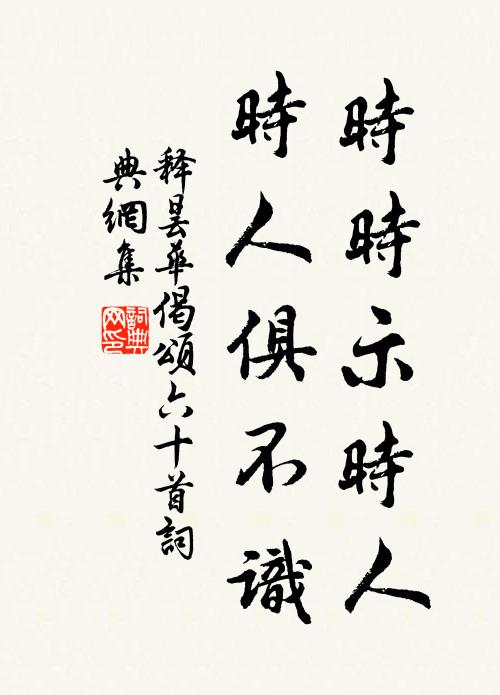 時時示時人
時人俱不識
释曇華偈頌六十首詞
典網集
詞典
网印